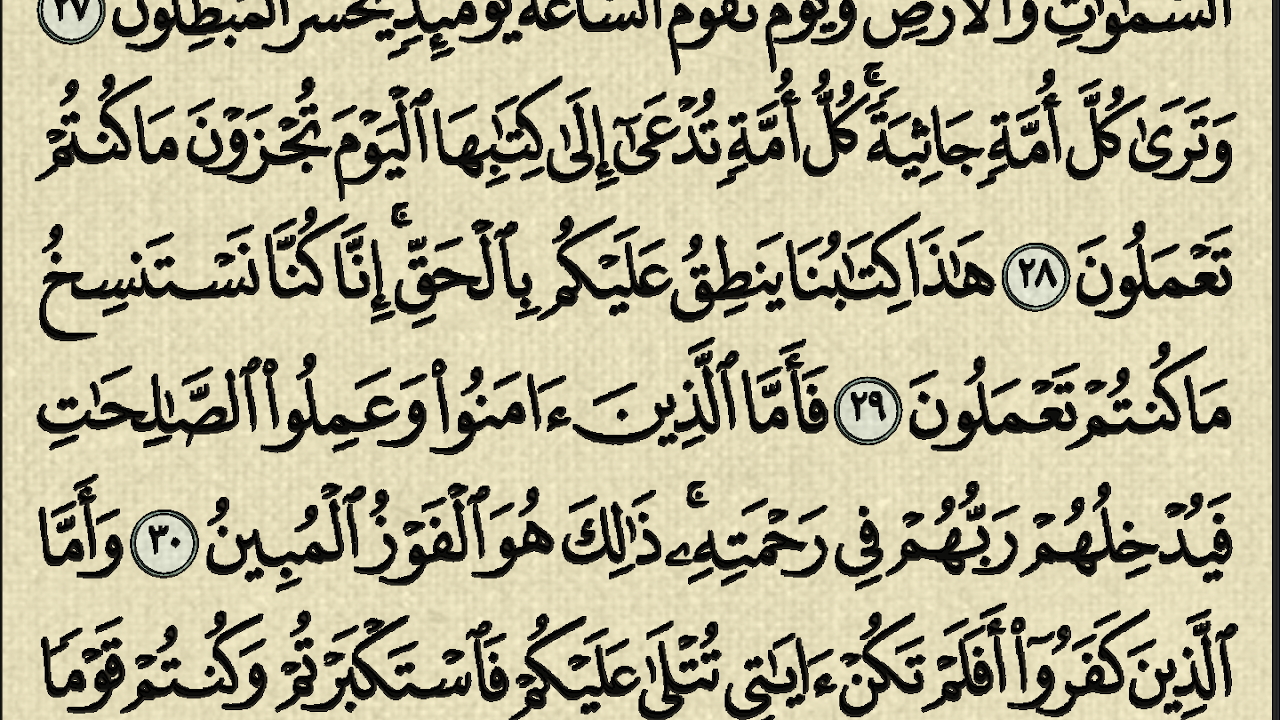 السَّمَٰوَٰتِ وَالْأَرْضِ وَيَوْمَ تَقُومُ السَّاعَةُ يَوْمَئِذٍ يَخْسَرُ الْمُبْطِلُونَ ٢٧
وَتَرَىٰ كُلَّ أُمَّةٍ جَاثِيَةً ۚ كُلُّ أُمَّةٍ تُدْعَىٰٓ إِلَىٰ كِتَٰبِهَا ٱلْيَوْمَ تُجْزَوْنَ مَا كُنتُمْ
تَعْمَلُونَ ٢٨ هَٰذَا كِتَٰبُنَا يَنطِقُ عَلَيْكُم بِٱلْحَقِّ ۚ إِنَّا كُنَّا نَسْتَنسِخُ
مَا كُنتُمْ تَعْمَلُونَ ٢٩ فَأَمَّا ٱلَّذِينَ ءَامَنُوا۟ وَعَمِلُوا۟ ٱلصَّٰلِحَٰتِ
فَيُدْخِلُهُمْ رَبُّهُمْ فِى رَحْمَتِهِۦ ۚ ذَٰلِكَ هُوَ ٱلْفَوْزُ ٱلْمُبِينُ ٣٠ وَأَمَّا
ٱلَّذِينَ كَفَرُوٓا۟ أَفَلَمْ تَكُنْ ءَايَٰتِى تُتْلَىٰ عَلَيْكُمْ فَٱسْتَكْبَرْتُمْ وَكُنتُمْ قَوْمًا